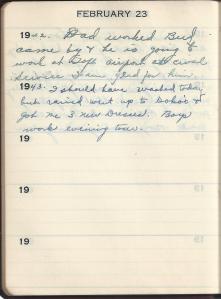 FEBRUARY 23
1942. Dad worked Bud
came by & he is going to
work at airport at civil
service I am glad for him.
1943. I should have washed today
but rained went up to &
got me 3 new Dresses. Boys
work evening tour.
19
19
19